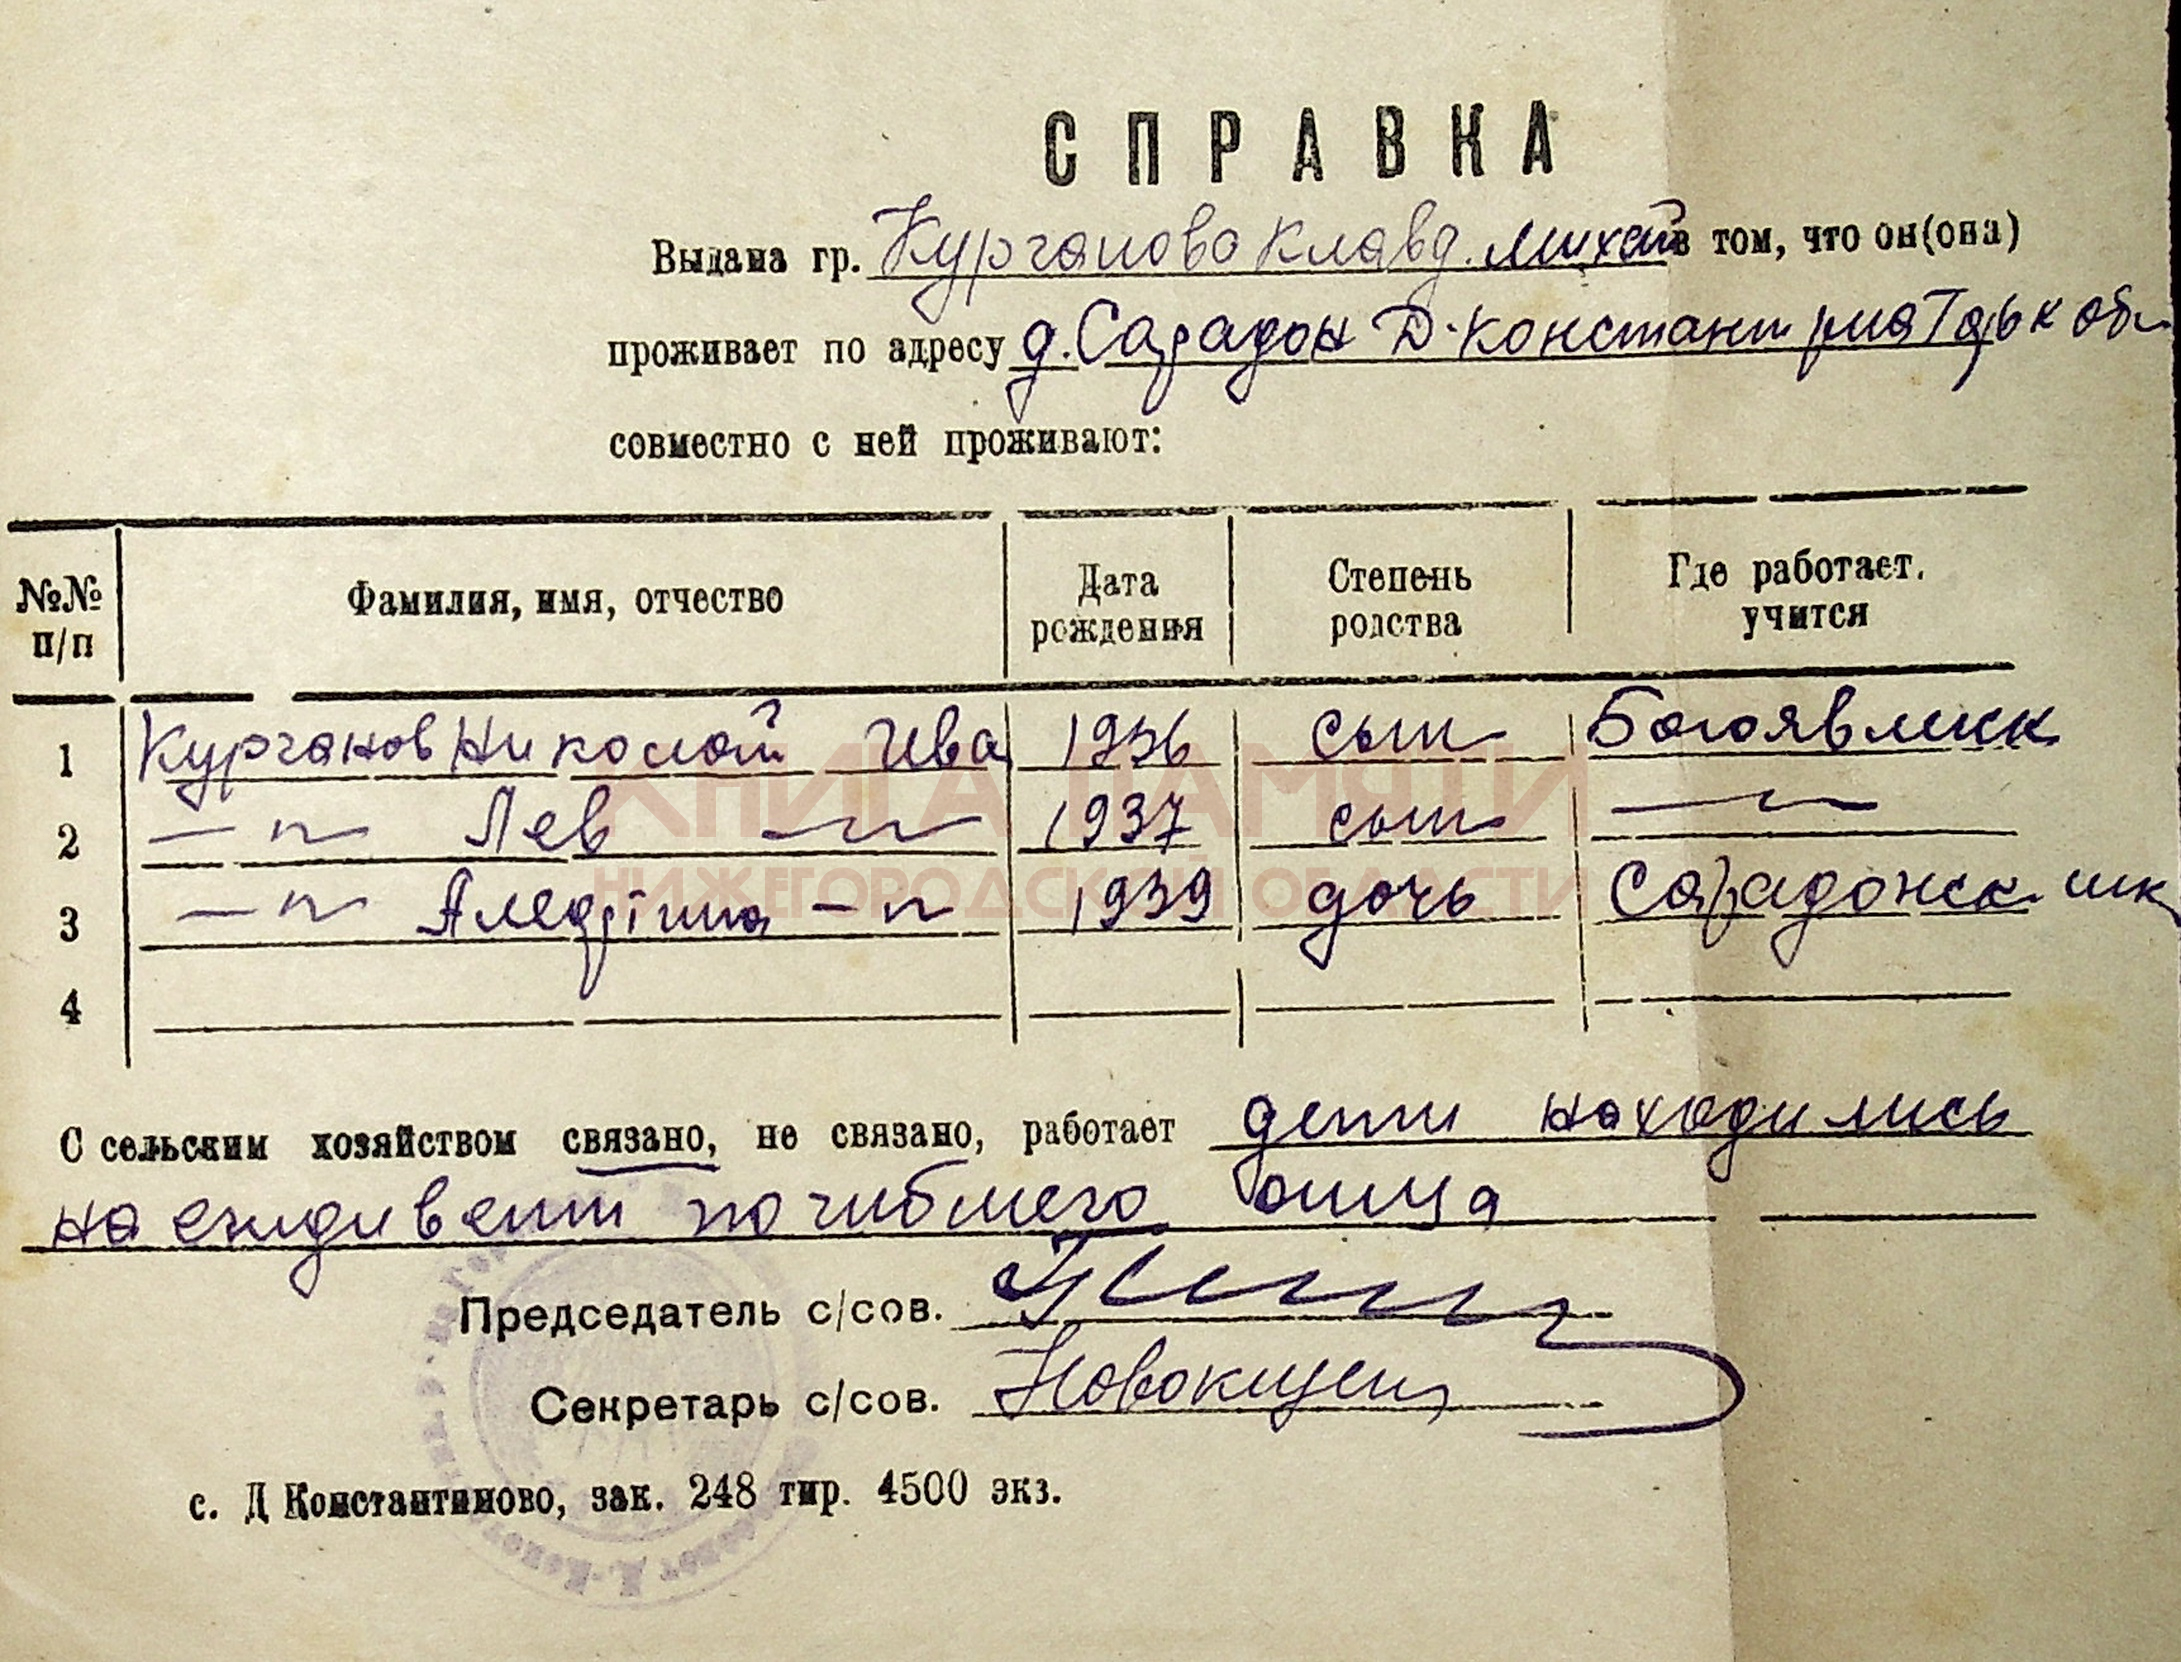 СПРАВКА
Выдана гр. Курганова Клавд. Михай в том, что он(она)
проживает по адресу д. Сарадон Д-Констант р-на Горьк обл
совместно с ней проживают:
№№ п/п Фамилия, имя, отчество Дата рождения Степень родства Где работает. учится
1 Курганов Николай Ива 1936 сын Богоявленск
2 —"— Лев —"— 1937 сын —"—
3 —"— Алевтина —"— 1939 дочь Сарадонск. шк
4
С сельским хозяйством связано, не связано, работает дети находились
на еждивении погибшего отца
Председатель с/сов.
Секретарь с/сов. Новокщен
с. Д Константиново, зак. 248 тир. 4500 экз.
КНИГА ПАМЯТИ
НИЖЕГОРОДСКОЙ ОБЛАСТИ